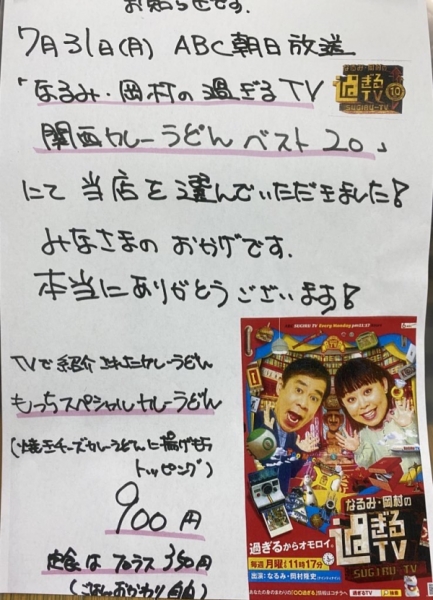 お知らせです.
7月31日(月) ABC朝日放送
「なるみ・岡村の過ぎるTV
なるみ・岡村の
過ぎるTV
10
SUGIRU-TV
関西カレーうどんベスト20」
にて当店を選んでいただきました!
みなさまのおかげです.
本当にありがとうございます!
SUGIRU TV Every Monday pm11:17
TVで紹介されたカレーうどん
もっちスペシャルカレーうどん
(焼チーズカレーうどんに揚げもち
トッピング)
900円
定食はプラス350円
(ごはんおかわり自由)
なるみ・岡村の
過ぎるTV
SUGIRU TV
過ぎるからオモロイ。
毎週月曜よる11時17分
出演:なるみ・岡村隆史(ナインティナイン)
あなたの身のまわりの「〇〇過ぎる」情報はコチラへ
過ぎるTV
検索